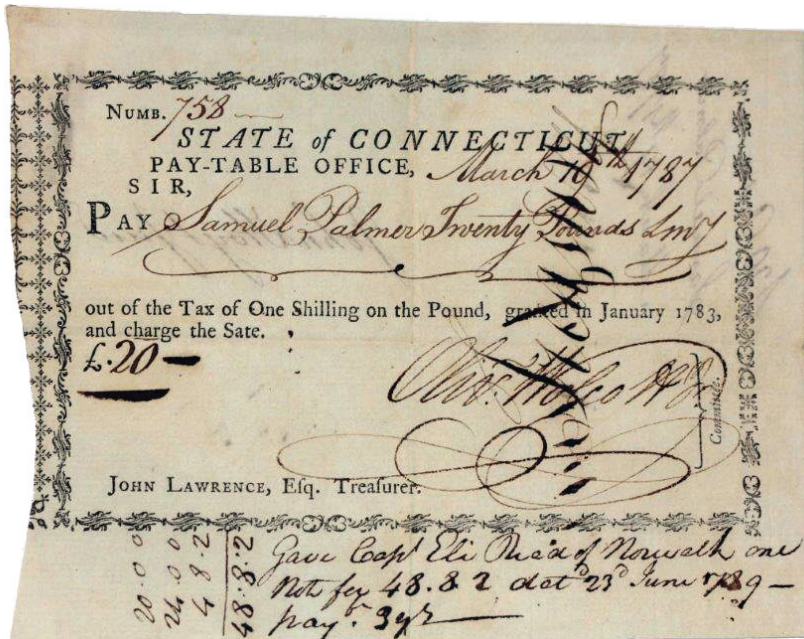 NUMB. 758
STATE of CONNECTICUT,
PAY-TABLE OFFICE, March 19th 1787
SIR,
PAY Samuel Palmer Twenty Pounds Lmy
out of the Tax of One Shilling on the Pound, granted in January 1783,
and charge the Sate.
£.20
Olivr. Wolcott Jr
Committee.
JOHN LAWRENCE, Esq. Treasurer.
20 0 0
24 0 0
4 8.2
48.8.2
Gave Capt Eli Read of Norwalk one
Not for 48.8 2 dat 23d June 1789
pay.